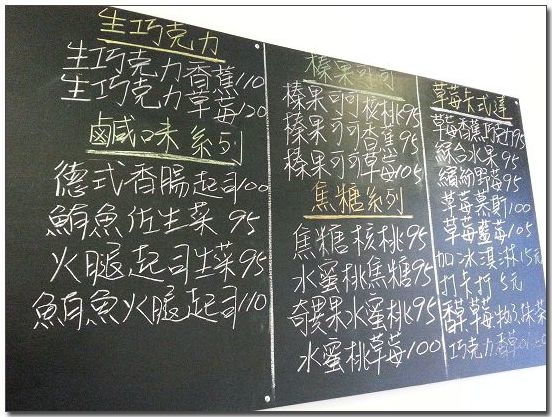 生巧克力
生巧克力香蕉110
生巧克力草莓120
鹹口味系列
德式香腸起司100
鮪魚佐生菜 95
火腿起司生菜95
鮪魚火腿起司110
榛果可可
榛果可可核桃95
榛果可可香蕉95
榛果可可草莓105
焦糖系列
焦糖核桃95
水蜜桃焦糖95
奇異果水蜜桃95
水蜜桃草莓100
草莓卡式達
草莓香蕉巧克力95
綜合水果 95
繽紛野莓95
草莓莫斯100
草莓藍莓105
加冰淇淋15元
打卡折 5元
香草草莓牛奶抹茶
巧克力